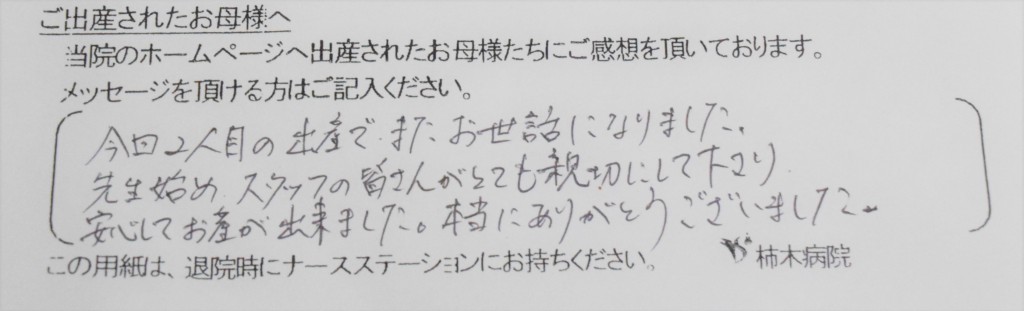 ご出産されたお母様へ
当院のホームページへ出産されたお母様たちにご感想を頂いております。
メッセージを頂ける方はご記入ください。
今回2人目の出産で、またお世話になりました。
先生始め、スタッフの皆さんがとても親切にして下さり
安心してお産が出来ました。本当にありがとうございました。
この用紙は、退院時にナースステーションにお持ちください。
柿木病院